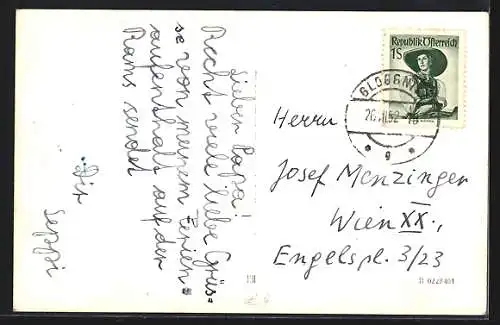 Lieber Papa!
Recht viele liebe Grüs=
se von meinem Ferien=
aufenthalt auf der
Rams sendet
Dir
Seppi
Republik Österreich
1S
GLOGGN
Herrn
Josef Menzinger
Wien XX.,
Engelspl. 3/23